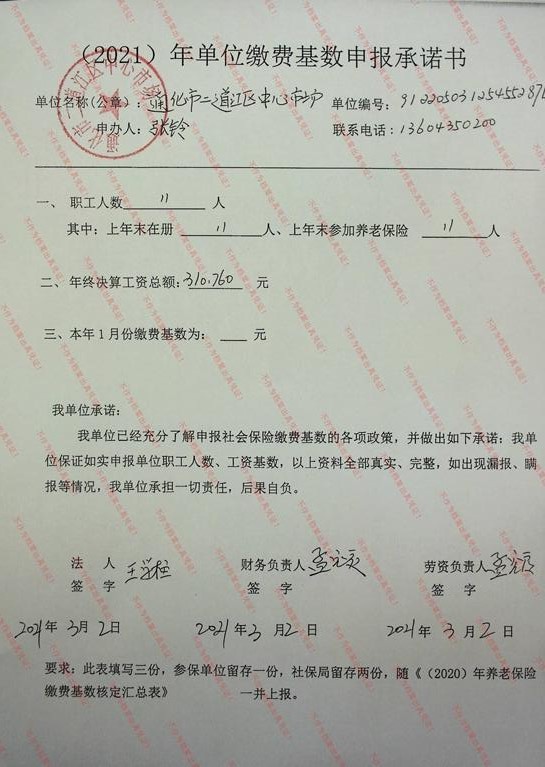 （2021）年单位缴费基数申报承诺书
单位名称(公章)：通化市二道江区中心市场 单位编号：
申办人：张铃 联系电话：13604350200
一、 职工人数 11 人
其中：上年末在册 11 人、上年末参加养老保险 11 人
二、年终决算工资总额：310.760 元
三、本年1月份缴费基数为： 元
我单位承诺：
我单位已经充分了解申报社会保险缴费基数的各项政策，并做出如下承诺：我单
位保证如实申报单位职工人数、工资基数，以上资料全部真实、完整，如出现漏报、瞒
报等情况，我单位承担一切责任，后果自负。
法 人 财务负责人 劳资负责人
签 字 签 字 签 字
2021年3月2日 2021年3月2日 2021年3月2日
要求：此表填写三份，参保单位留存一份，社保局留存两份，随《（2020）年养老保险
缴费基数核定汇总表》 一并上报。